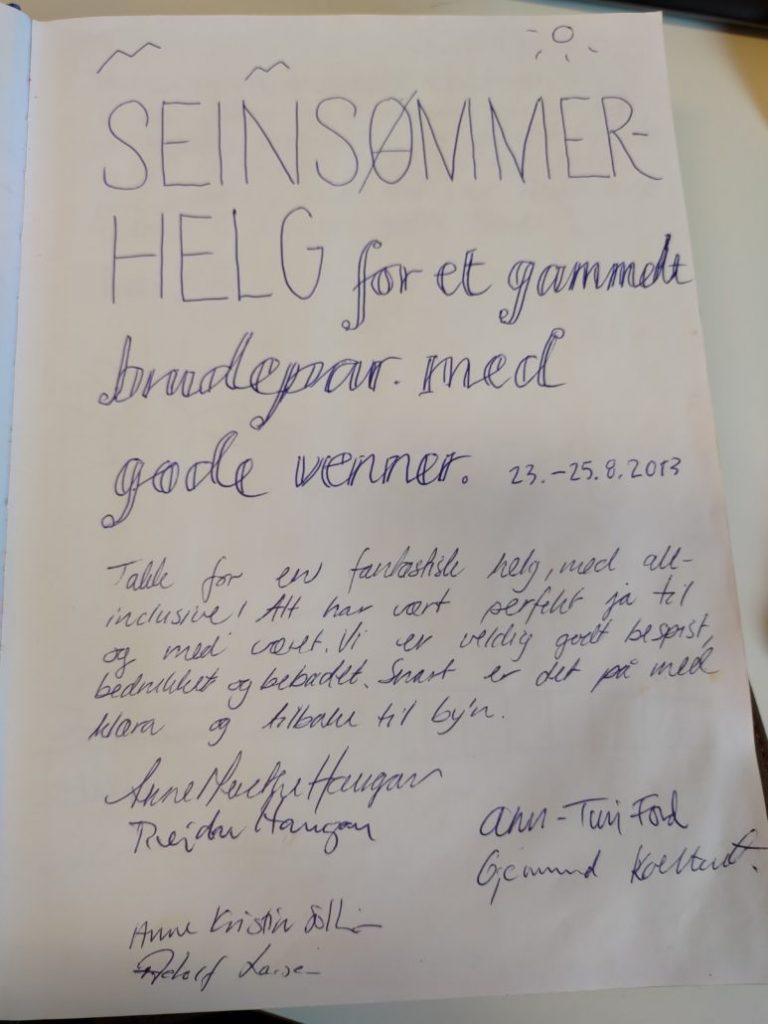 SEINSØMMER-
HELG for et gammelt
brudepar. med
gode venner. 23.-25.8.2013
Takk for en fantastisk helg, med all-
inclusive! Alt har vært perfekt ja til
og med været. Vi er veldig godt bespist,
bedrukket og bebadet. Snart er det på med
klæra og tilbake til by'n.
Anne Haugan
Reidar Haugan
Ann-Turi Ford
Gjermund
Anne Kristin